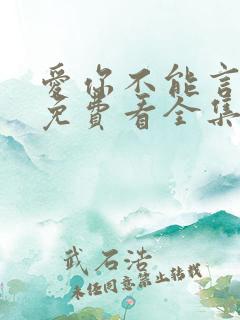 愛你不能言
免費看全集
武石浩
未经同意禁止转载